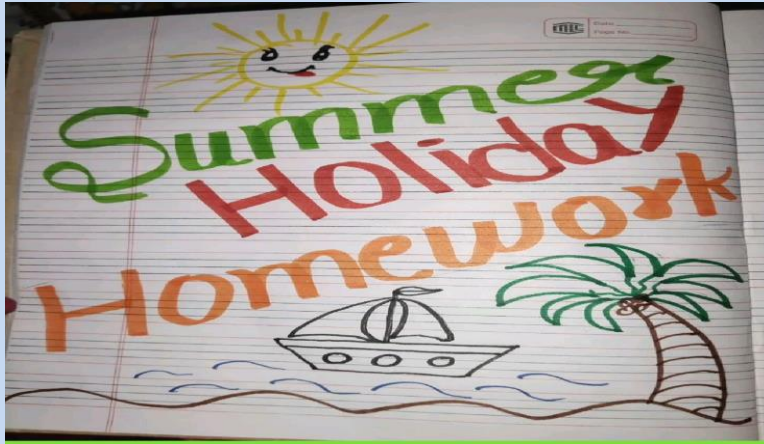 MLC
Date
Page No.
Summer
Holiday
Homework